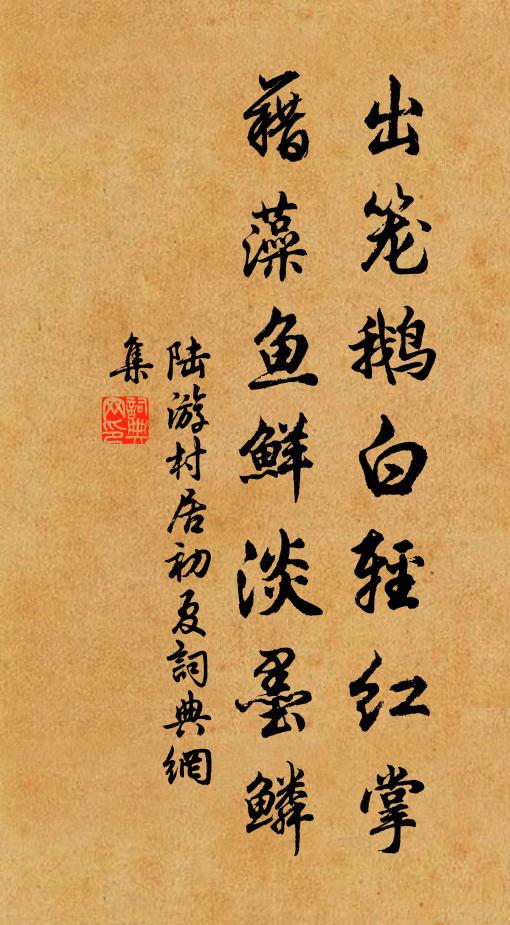 出笼鹅白轻红掌
藉藻鱼鲜淡墨鳞
陆游村居初夏詞典網
集
詞典
网印